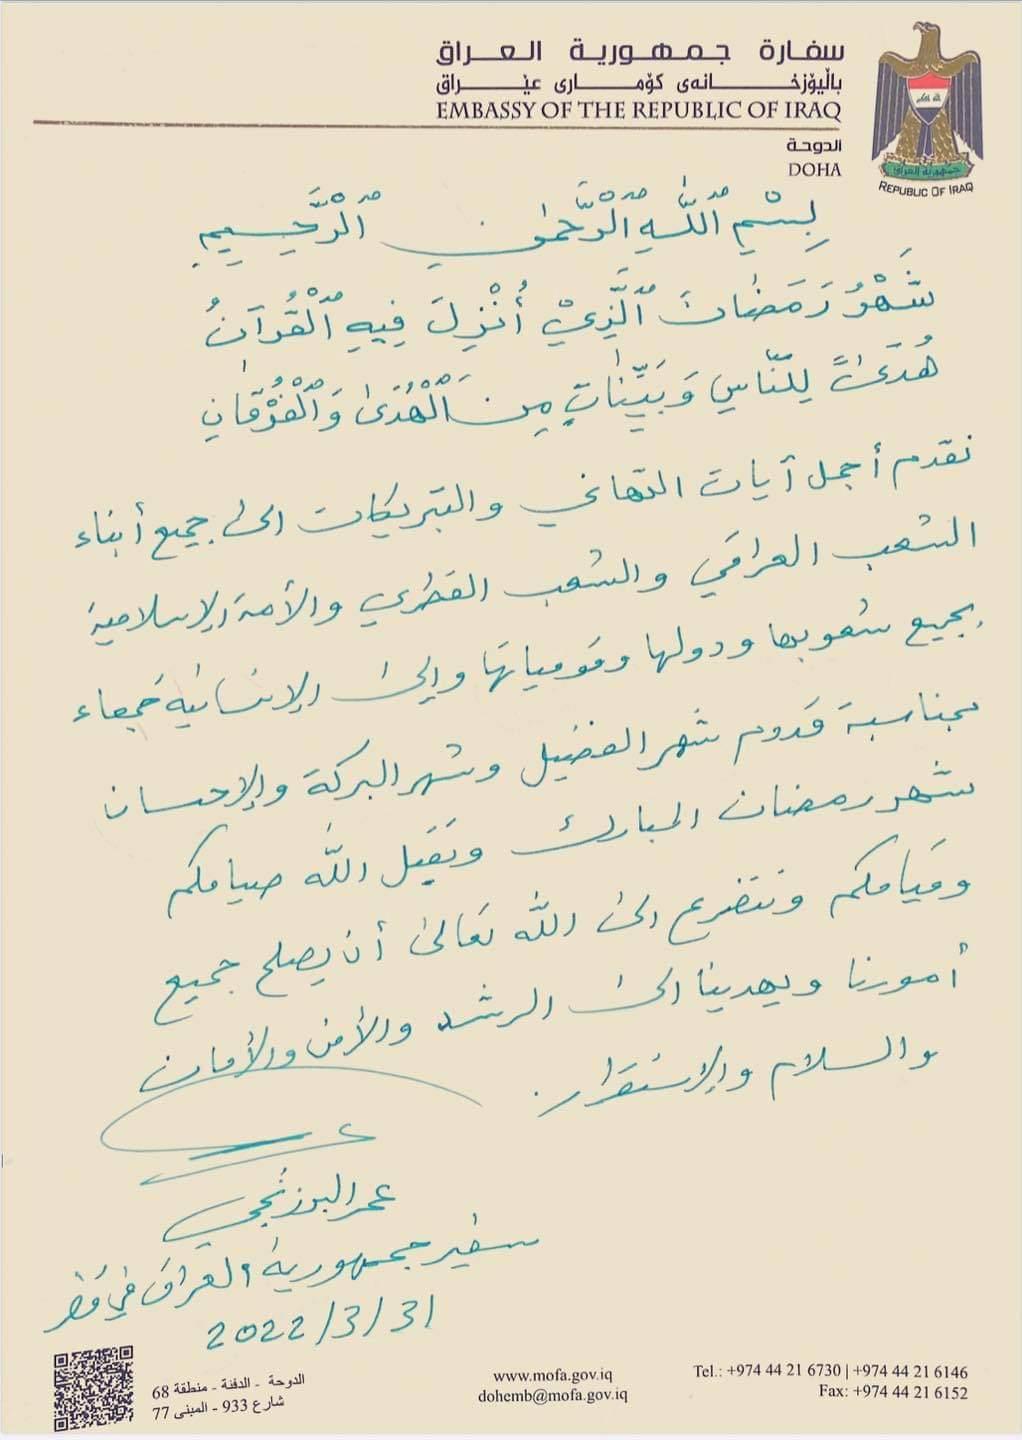 سفارة جمهورية العراق
باڵیۆزخانەی کۆماری عێراق
EMBASSY OF THE REPUBLIC OF IRAQ
الدوحة
DOHA
جمهورية العراق
REPUBLIC OF IRAQ
بِسْمِ ٱللَّهِ ٱلْرَّحْمٰنِ ٱلْرَّحِيمِ
شَهْرُ رَمَضَانَ ٱلَّذِيْ أُنْزِلَ فِيهِ ٱلْقُرْآنُ
هُدَىً لِلنَّاسِ وَبَيِّنَاتٍ مِنَ ٱلْهُدَىٰ وَٱلْفُرْقَانِ
نقدم أجمل آيات التهاني والتبريكات الى جميع أبناء
الشعب العراقي والشعب القطري والأمة الإسلامية
بجميع شعوبها ودولها وقومياتها وإلى الإنسانية جمعاء
بمناسبة قدوم شهر الفضيل وشهر البركة والإحسان
شهر رمضان المبارك وتقبل الله صيامكم
وقيامكم ونتضرع الى الله تعالى أن يصلح جميع
أمورنا ويهدينا الى الرشد والأمن والأمان
والسلام والإستقرار.
عمر البرزنجي
سفير جمهورية العراق في قطر
2022/3/31
الدوحة - الدفنة - منطقة 68
شارع 933 - المبنى 77
www.mofa.gov.iq
dohemb@mofa.gov.iq
Tel.: +974 44 21 6730 | +974 44 21 6146
Fax: +974 44 21 6152